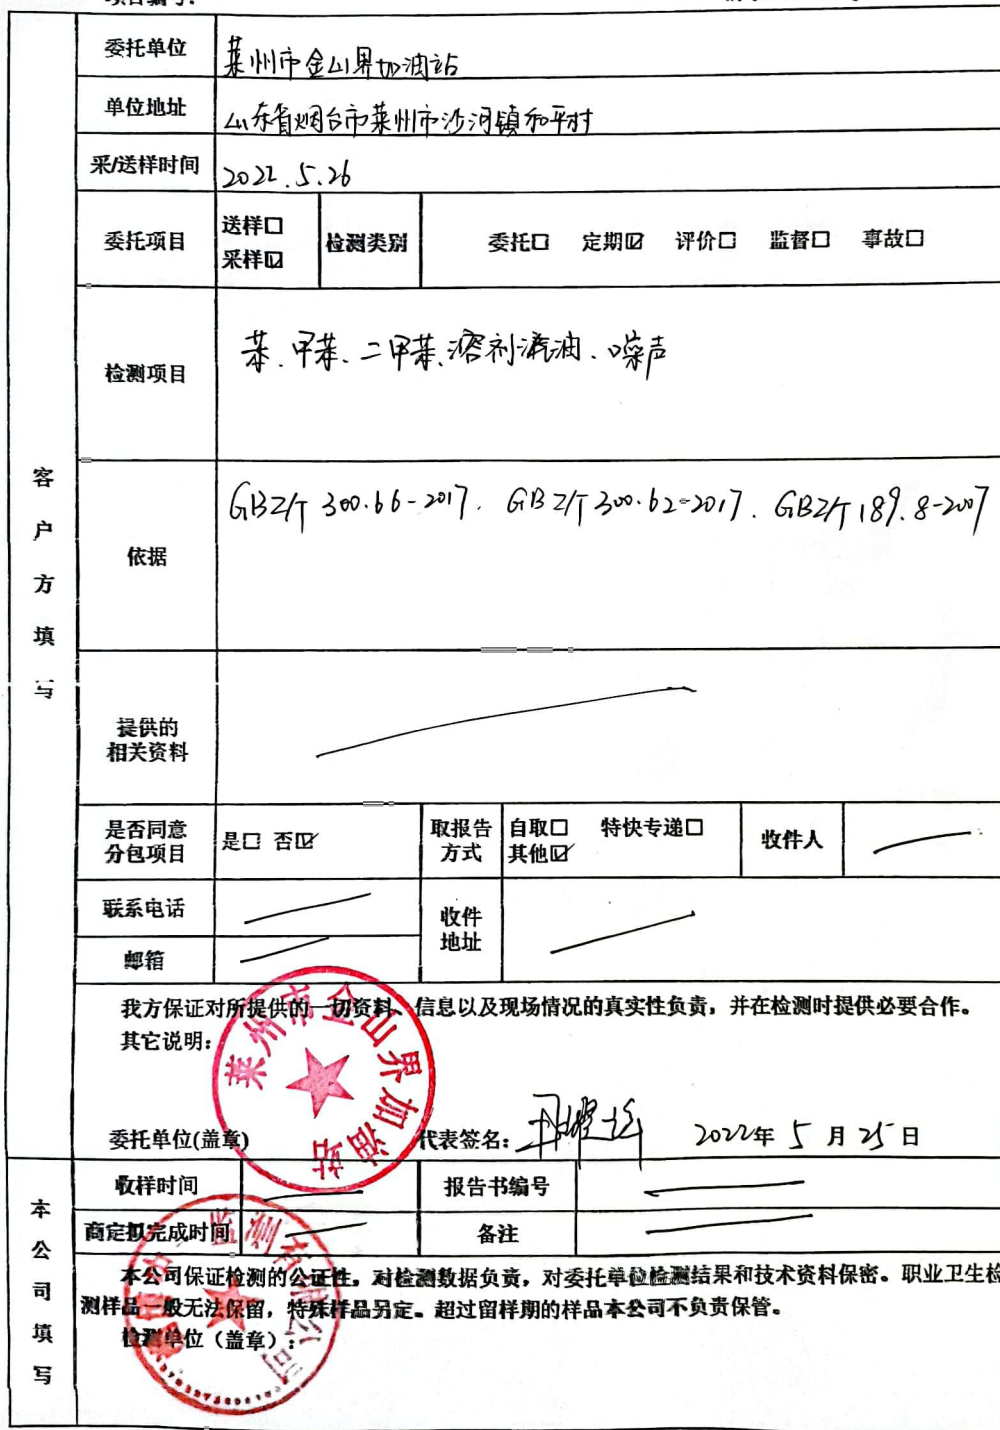 委托单位 莱州市金山界加油站
单位地址 山东省烟台市莱州市沙河镇和平村
采/送样时间 2022.5.26
委托项目 送样□ 采样☑ 检测类别 委托□ 定期☑ 评价□ 监督□ 事故□
检测项目 苯、甲苯、二甲苯、溶剂汽油、噪声
客户方填写
依据 GBZ/T 300.66-2017、GBZ/T 300.62-2017、GBZ/T 189.8-2007
提供的
相关资料
是否同意
分包项目 是□ 否☑
取报告
方式
自取□ 特快专递□
其他☑
收件人
联系电话
收件
地址
邮箱
我方保证对所提供的一切资料、信息以及现场情况的真实性负责，并在检测时提供必要合作。
其它说明：
莱州市金山界加油站
委托单位(盖章) 代表签名： 2022年 5 月 25 日
本公司填写
收样时间 报告书编号
商定拟完成时间 备注
本公司保证检测的公证性，对检测数据负责，对委托单位检测结果和技术资料保密。职业卫生检
测样品一般无法保留，特殊样品另定。超过留样期的样品本公司不负责保管。
检测单位（盖章）：